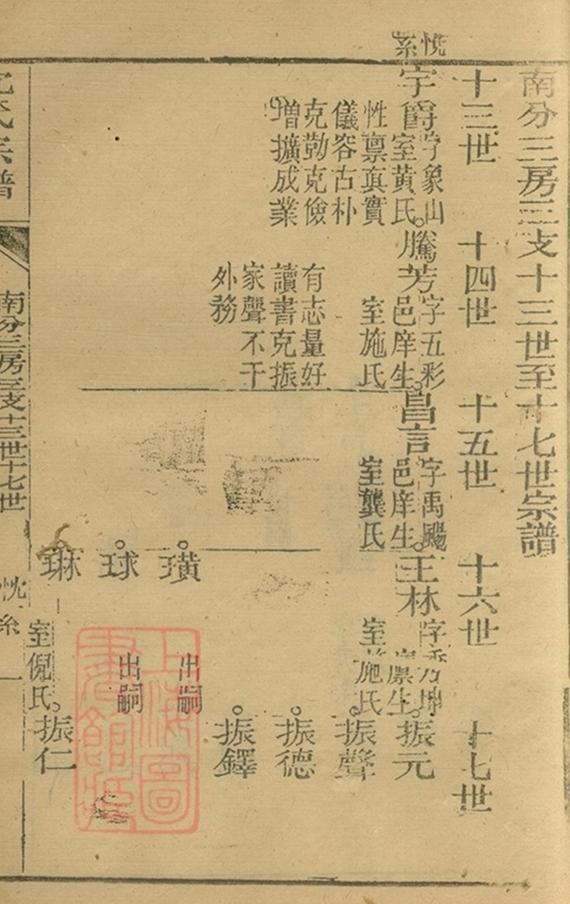 南分三房三支十三世至十七世宗譜
十三世 十四世 十五世 十六世 十七世
悅系
宇爵 字象山 室黃氏
性禀真實
儀容古朴
克勤克儉
增擴成業
騰芳 字五彩 邑庠生 室施氏
有志量好
讀書克振
家聲不干
外務
昌言 字禹颺 邑庠生 室龔氏
王林 字 廪生 室施氏
璜 出嗣
球 出嗣
琳 室倪氏
振元
振聲
振德
振鐸
振仁
氏宗譜
南分三房三支十三世十七世